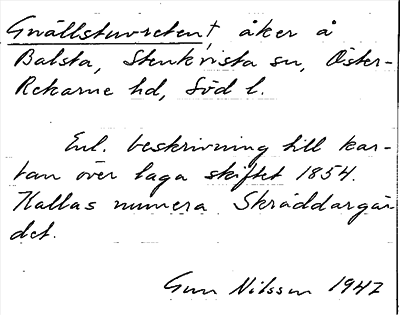 Gnällstuvreten†, åker å
Balsta, Stenkvista sn, Öster-
Rekarne hd, Söd l.
Enl. beskrivning till kar-
tan över laga skiftet 1854.
Kallas numera Skräddargär
det.
Gun Nilsson 1947